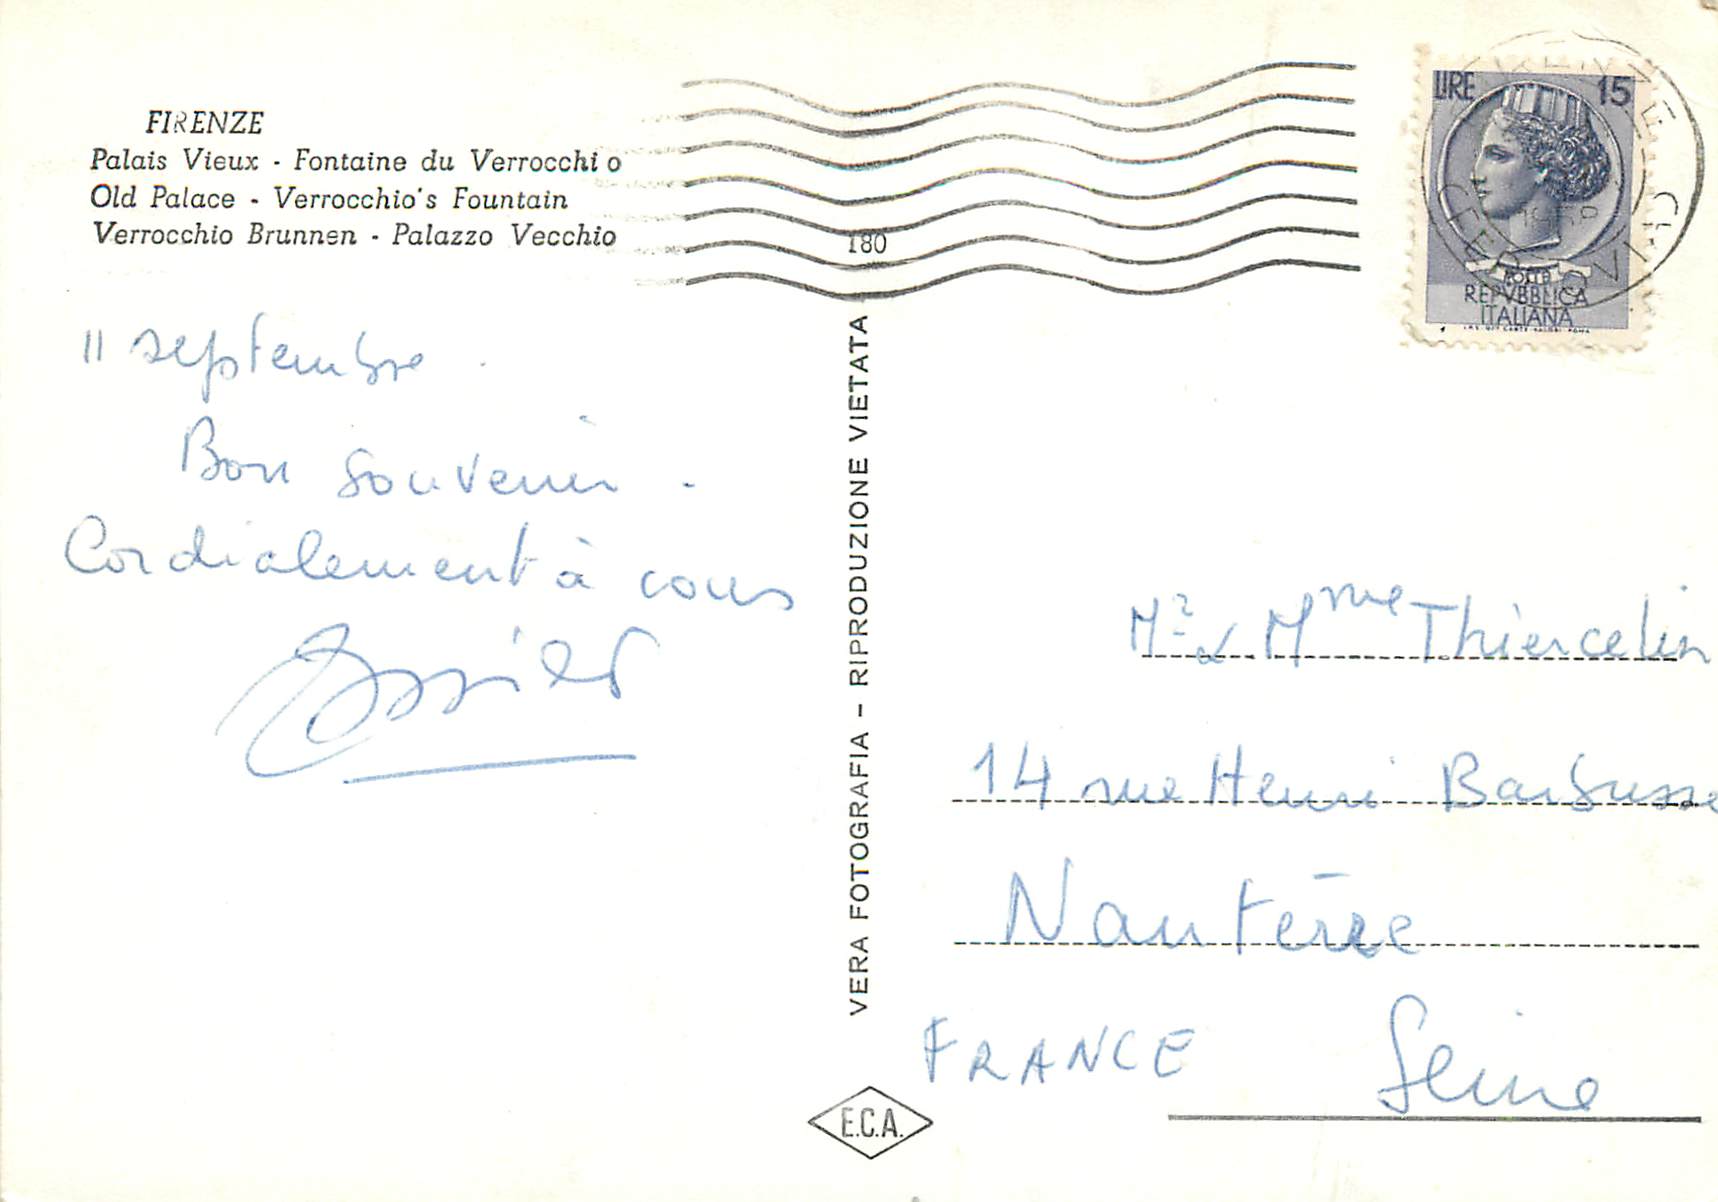 FIRENZE
Palais Vieux - Fontaine du Verrocchio
Old Palace - Verrocchio's Fountain
Verrocchio Brunnen - Palazzo Vecchio
180
11 septembre.
Bon souvenir.
Cordialement à vous
VERA FOTOGRAFIA - RIPRODUZIONE VIETATA
E.C.A.
LIRE 15
POSTE
REPVBBLICA
ITALIANA
FIRENZE
Mr & Mme Thiercelin
14 rue Henri Barbusse
Nanterre
FRANCE Seine